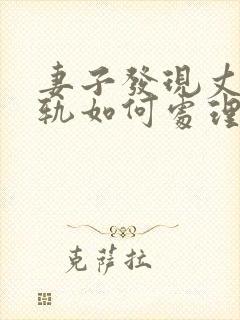 妻子發現丈
軌如何處理
克薩拉